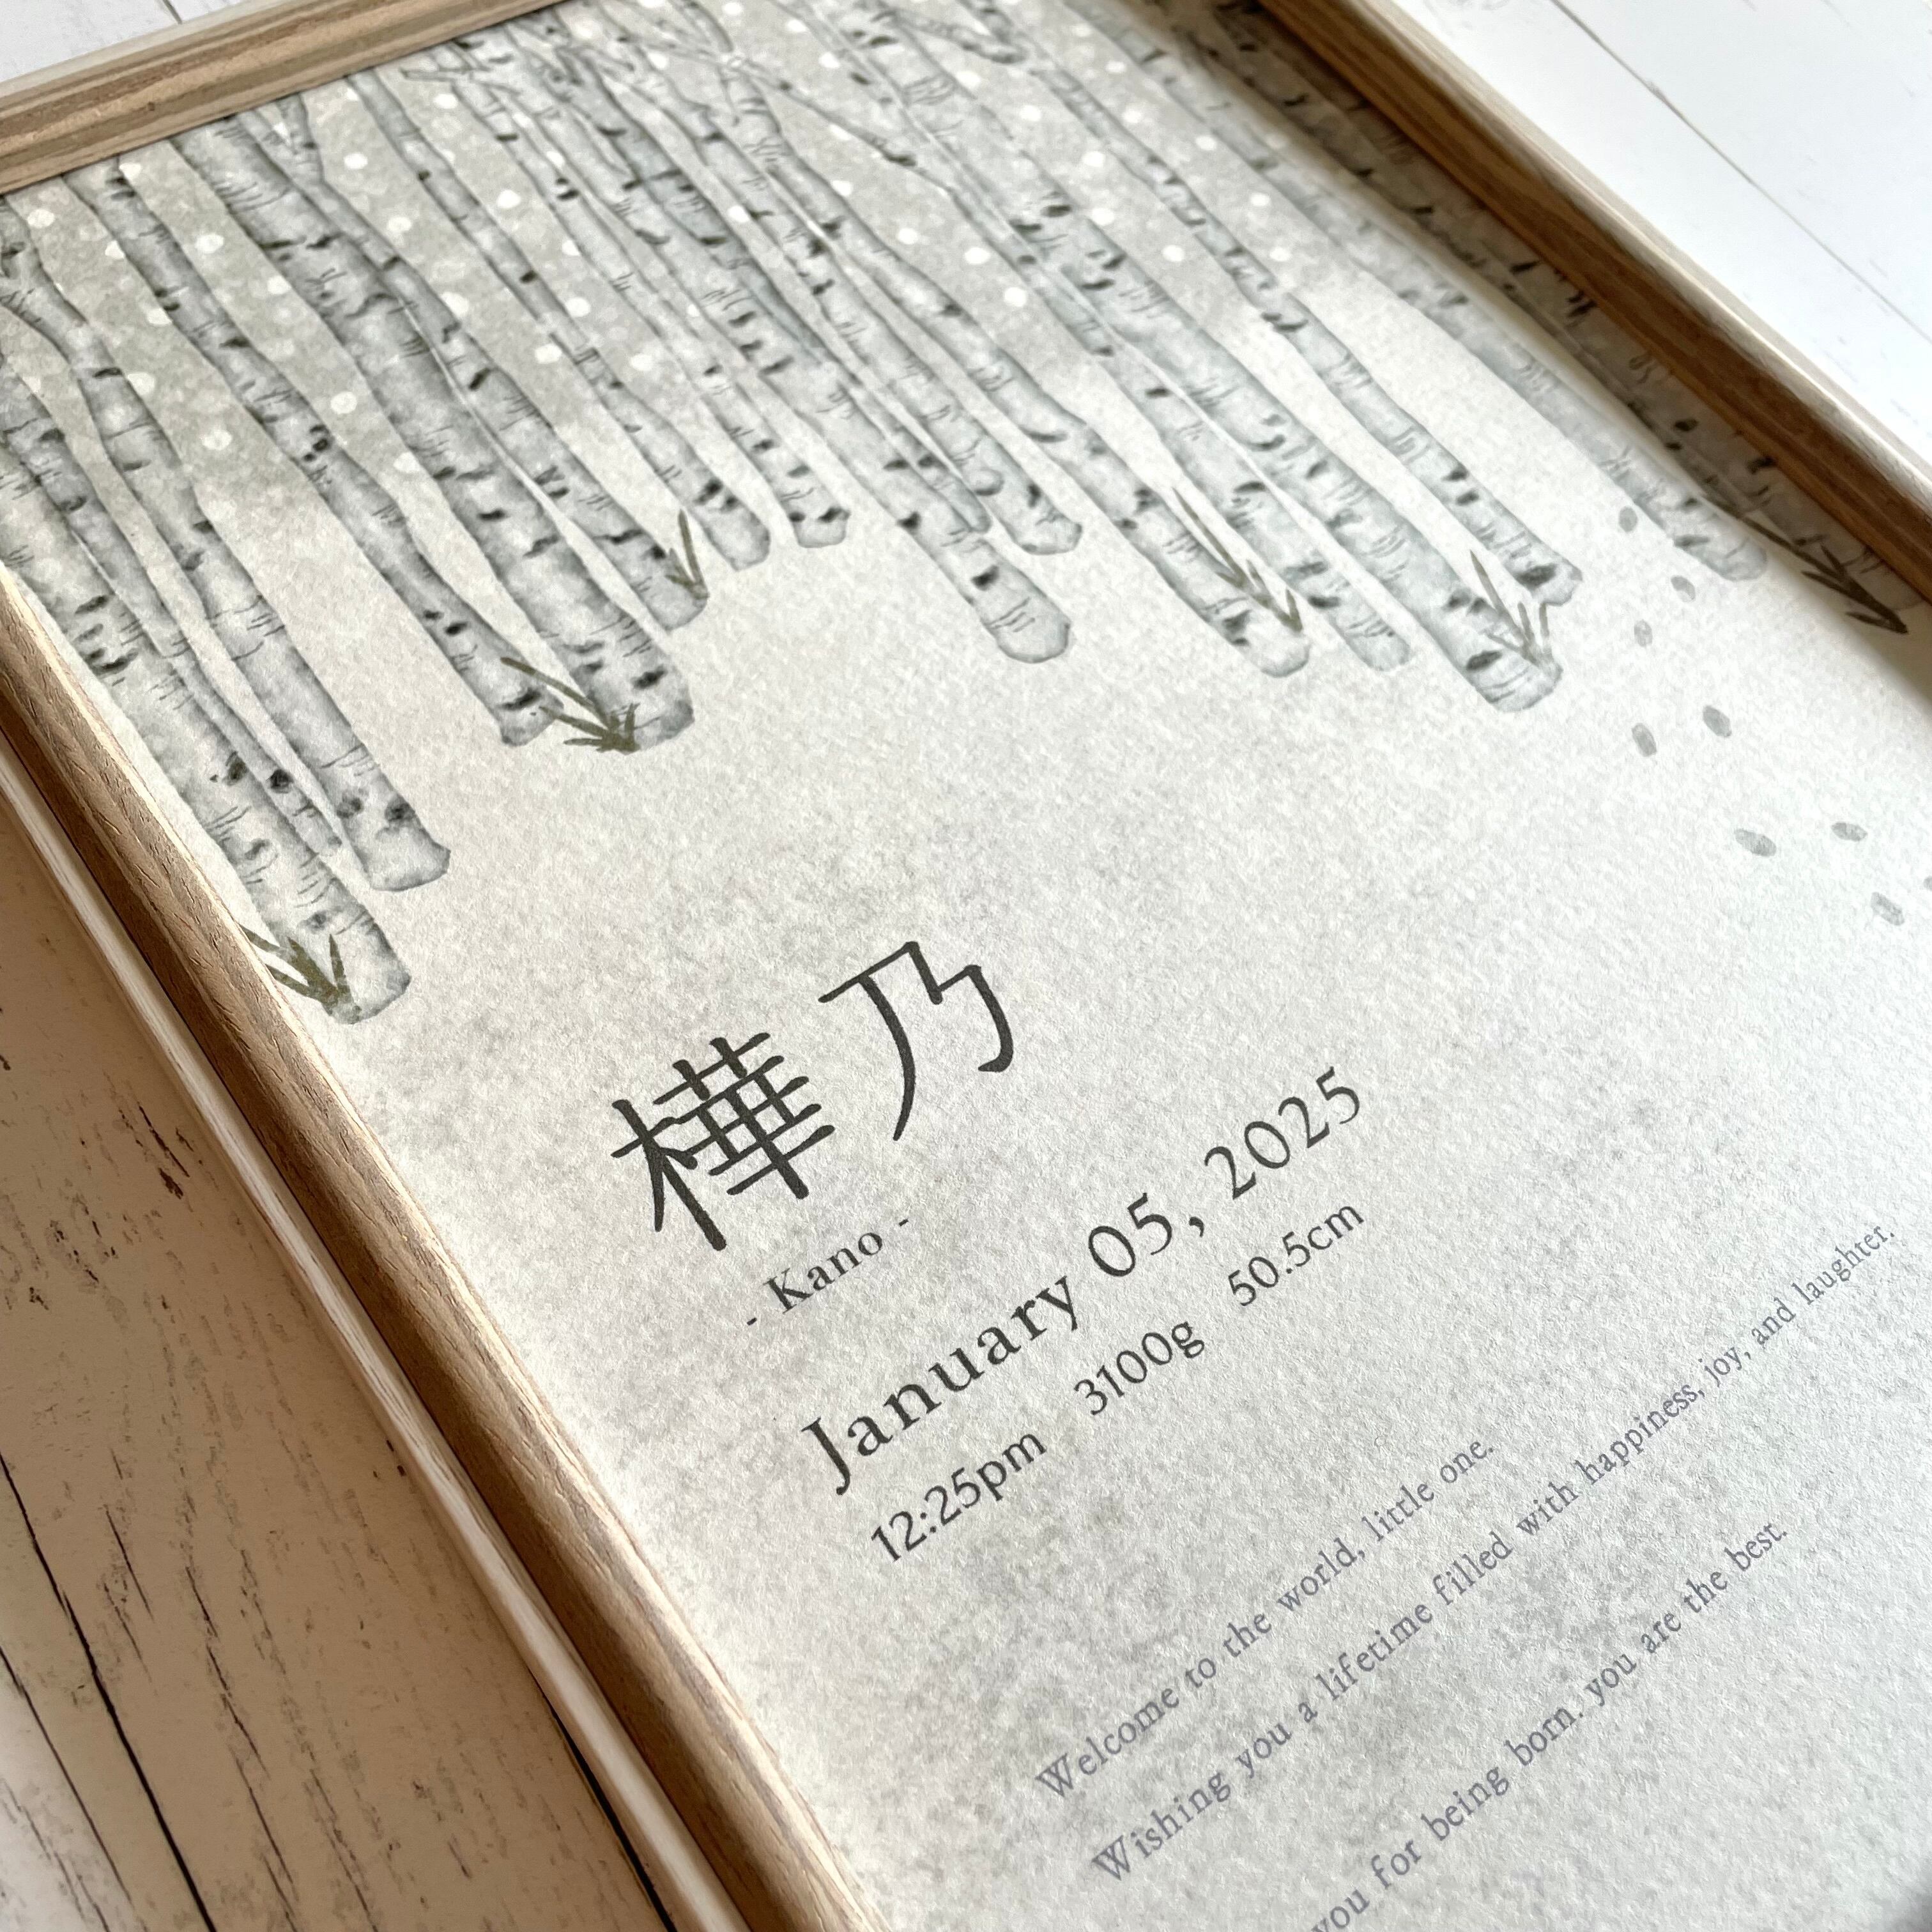 樺乃
- Kano -
January 05, 2025
12:25pm 3100g 50.5cm
Welcome to the world, little one.
Wishing you a lifetime filled with happiness, joy, and laughter.
you for being born. you are the best.